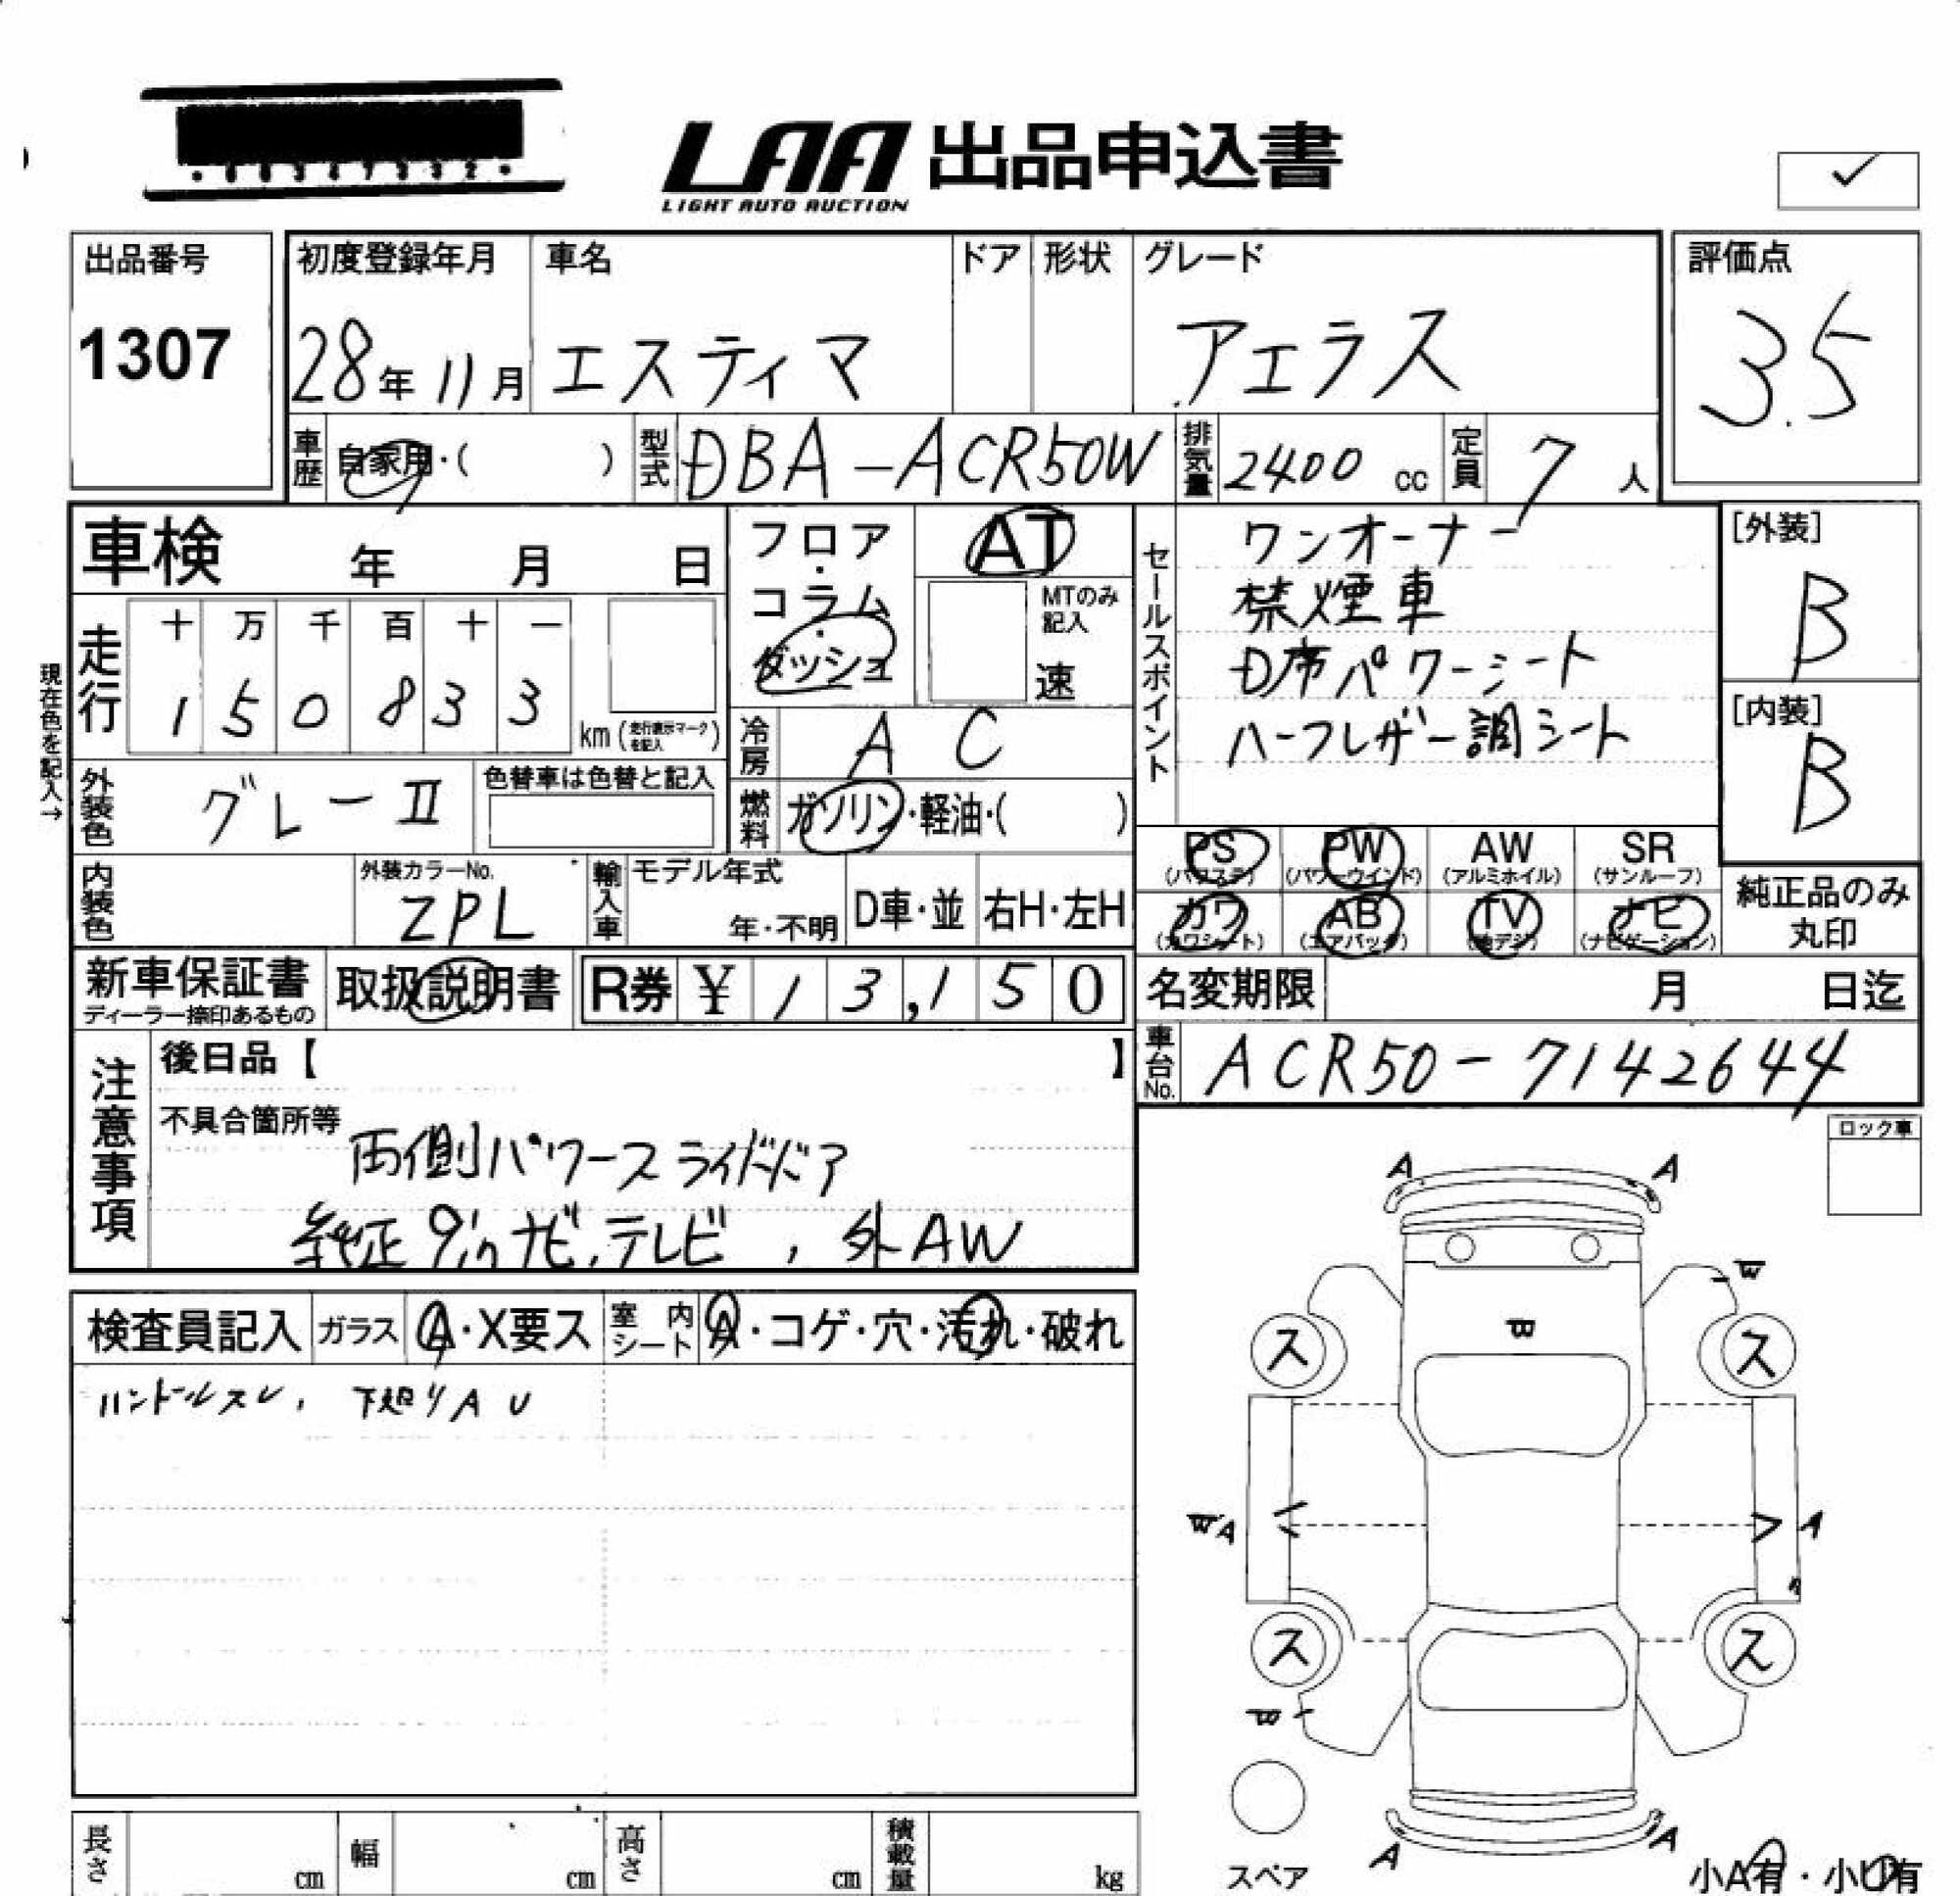 LAA 出品申込書
LIGHT AUTO AUCTION
出品番号
1307
初度登録年月
28年 11月
車名
エスティマ
ドア
形状
グレード
アエラス
評価点
3.5
車歴
自家用・( )
型式
DBA-ACR50W
排気量
2400 cc
定員
7 人
車検 年 月 日
フロア・コラム・ダッシュ
AT
MTのみ記入
速
セールスポイント
ワンオーナー
禁煙車
D席パワーシート
ハーフレザー調シート
[外装]
B
[内装]
B
現在色を記入→
走行
十 万 千 百 十 一
1 5 0 8 3 3
km (走行表示マークを記入)
冷房
A C
外装色
グレーII
色替車は色替と記入
燃料
ガソリン・軽油・( )
PS (パワステ)
PW (パワーウインド)
AW (アルミホイル)
SR (サンルーフ)
カワ (カワシート)
AB (エアバッグ)
TV (地デジ)
ナビ (ナビゲーション)
純正品のみ
丸印
内装色
外装カラーNo.
ZPL
輸入車
モデル年式
年・不明
D車・並
右H・左H
新車保証書
ディーラー捺印あるもの
取扱説明書
R券 ¥ 13,150
名変期限 月 日迄
車台No.
ACR50-7142644
注意事項
後日品【 】
不具合箇所等
両側パワースライドドア
純正9inナビ,テレビ, 外AW
ロック車
検査員記入
ガラス
A・X要ス
室内シート
A・コゲ・穴・汚れ・破れ
ハンドルスレ, 下廻りAU
A A
W
W
ス ス
WA A
ス ス
A A
スペア
小A有・小U有
長さ cm
幅 cm
高さ cm
積載量 kg